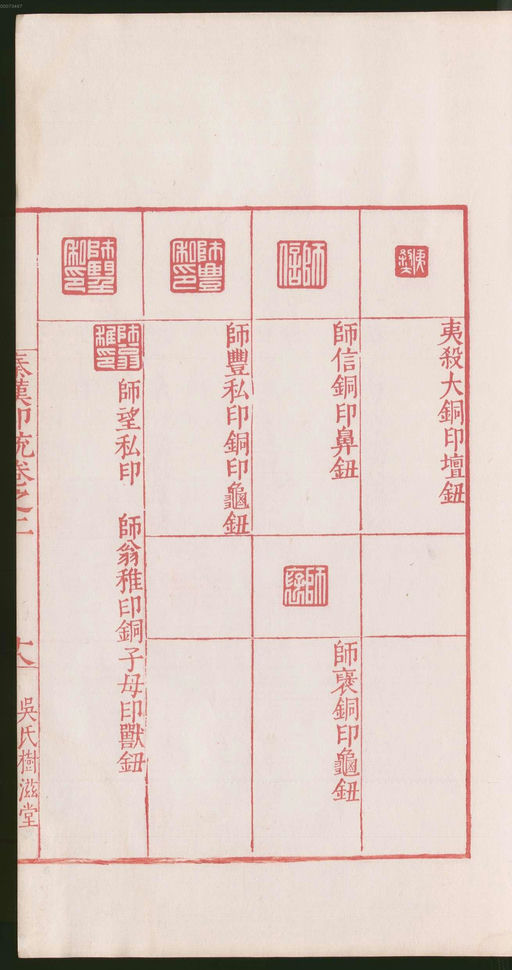 夷殺大銅印壇鈕
師信銅印鼻鈕
師䙝銅印龜鈕
師豐私印銅印龜鈕
師望私印 師翁稚印銅子母印獸鈕
秦漢印統卷之二
十八
吳氏樹滋堂
00073467